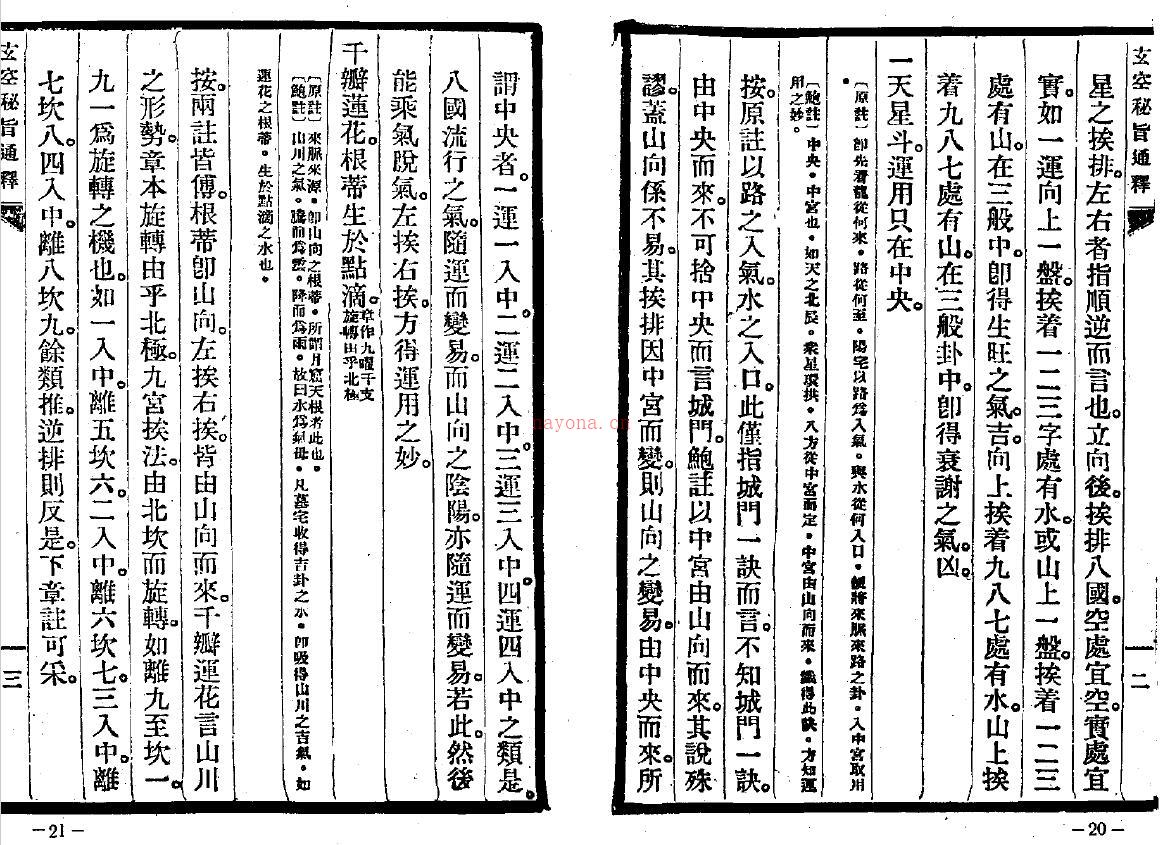 玄空秘旨通釋
二
星之挨排。左右者指順逆而言也。立向後。挨排八國。空處宜空。實處宜
實。如一運向上一盤。挨着一二三字處有水。或山上一盤。挨着一二三
處有山。在三般中。卽得生旺之氣。吉。向上挨着九八七處有水。山上挨
着九八七處有山。在三般卦中。卽得衰謝之氣。凶。
一天星斗。運用只在中央。
〔原註〕卽先看龍從何來。路從何至。陽宅以路爲入氣。與水從何入口。便將來脈來路之卦。入中宮取用
。
〔鮑註〕中央。中宮也。如天之北辰。衆星環拱。八方從中宮而定。中宮由山向而來。識得此訣。方知運
用之妙。
按。原註以路之入氣。水之入口。此僅指城門一訣而言。不知城門一訣。
由中央而來。不可捨中央而言城門。鮑註以中宮由山向而來。其說殊
謬。蓋山向係不易。其挨排因中宮而變。則山向之變易。由中央而來。所
—20—
謂中央者。一運一入中。二運二入中。三運三入中。四運四入中之類是。
八國流行之氣。隨運而變易。而山向之陰陽。亦隨運而變易。若此。然後
能乘氣脫氣。左挨右挨。方得運用之妙。
千瓣蓮花。根蒂生於點滴。章作九曜干支旋轉由乎北極
〔原註〕來脈來源。卽山向之根蒂。所謂月窟天根者此也。
〔鮑註〕山川之氣。騰而爲雲。降而爲雨。故曰水爲氣母。凡墓宅收得吉卦之水。卽吸得山川之吉氣。如
蓮花之根蒂。生於點滴之水也。
按。兩註皆傅。根蒂卽山向。左挨右挨。皆由山向而來。千瓣蓮花言山川
之形勢。章本旋轉由乎北極。九宮挨法。由北坎而旋轉。如離九至坎一。
九一爲旋轉之機也。如一入中。離五坎六。二入中。離六坎七。三入中。離
七坎八。四入中。離八坎九。餘類推。逆排則反是。下章註可采。
玄空秘旨通釋
三
—21—
nayona.cn